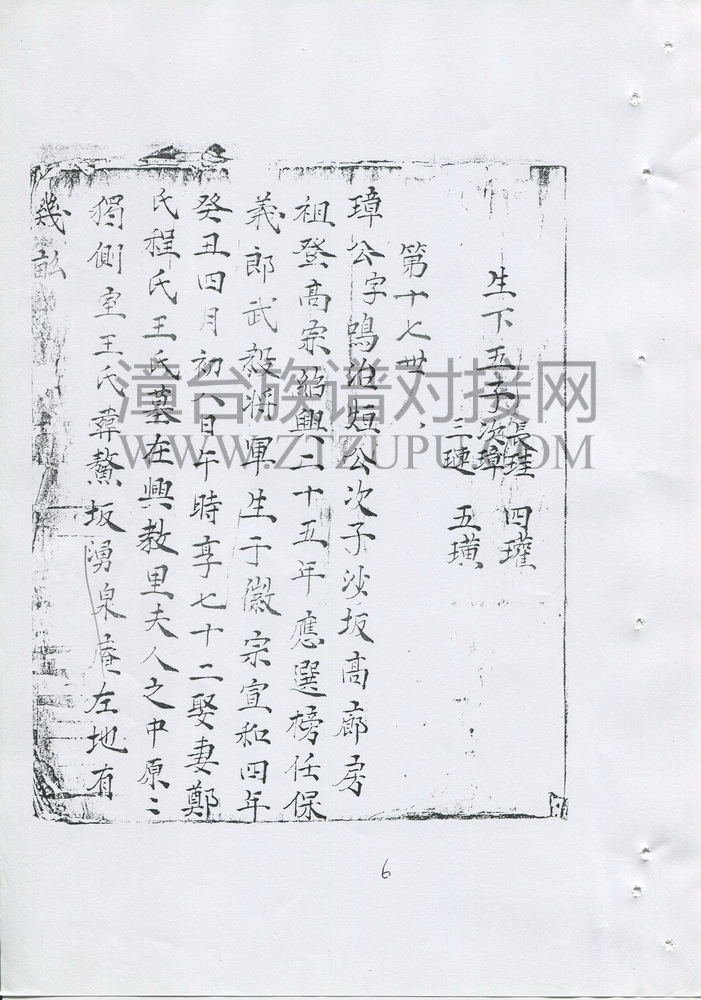 生下五子 長珪 四瓘
次璋
三璉 五璜
第十七世
璋公字鳴治烜公次子沙坂高廊房
祖登高宗紹興二十五年應選榜任保
義郎武毅將軍生于徽宗宣和四年
癸丑四月初八日午時享七十二娶妻鄭
氏程氏王氏墓在興教里夫人之中原二
獨側室王氏葬鰲坂湧泉庵左地有
幾畝
漳台族谱对接网
WWW.ZTZUPU.COM
6